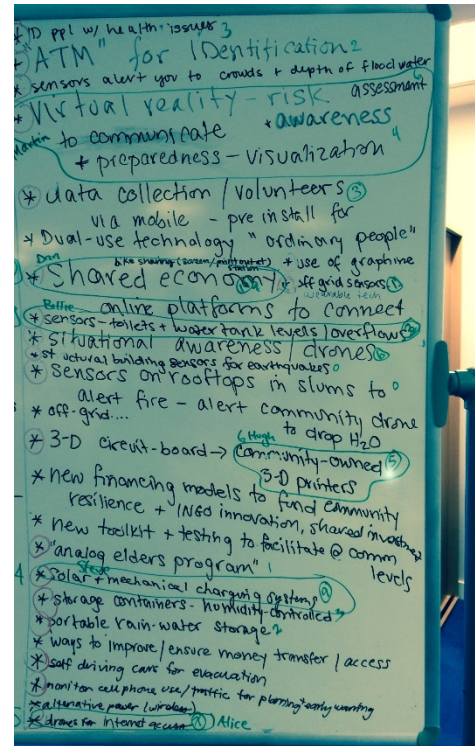 * ID ppl w/ health issues 3
* "ATM" for IDentification 2
* sensors alert you to crowds + depth of flood water
* Virtual reality - risk assessment
to communicate * awareness
Martin + preparedness - visualization 4
* data collection / volunteers 3
via mobile - pre install for
* Dual-use technology "ordinary people"
bike sharing (screen/ * use of graphine
* Shared economy * off grid sensors
wearable tech
online platforms to connect
* sensors - toilets + water tank levels / overflows
* situational awareness / drones 6
* structural building sensors for earthquakes 0
* sensors on rooftops in slums to 0
alert fire - alert community drone
* off-grid.... to drop H2O
6 Hugh
* 3-D circuit-board → community-owned 5
3-D printers
* new financing models to fund community
resilience + INGO innovation, shared investment
* new toolkit + testing to facilitate @ comm
levels
* "analog elders program" 1
4 Steve
* solar + mechanical charging systems
* storage containers - humidity-controlled
* portable rain-water storage 2
* ways to improve / ensure money transfer / access
* self driving cars for evacuation
* monitor cell phone use / traffic for planning + early warning
* alternative power (wireless)
* drones for internet access Alice